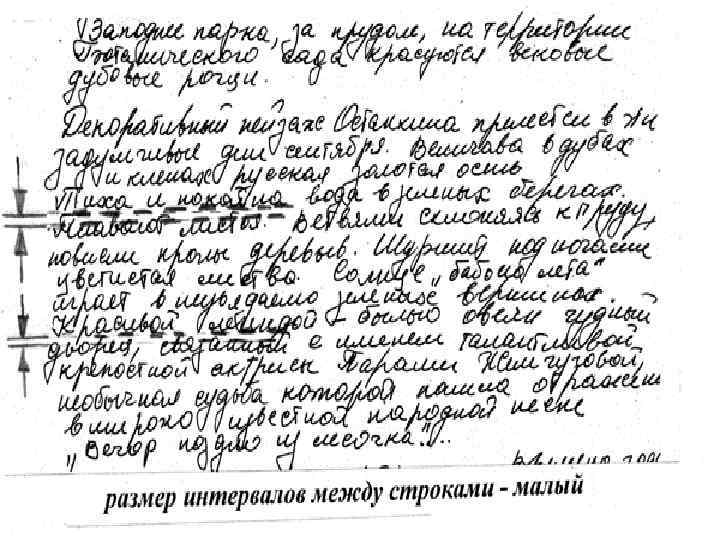 Западнее парка, за прудом, на территории
Ботанического сада красуются вековые
дубовые рощи.
Декоративный пейзаж Останкина прелестен в эти
задумчивые дни сентября. Величава в дубах
и кленах русская золотая осень.
Тиха и покойна вода в зеленых берегах.
Плавают листья. Ветвями склоняясь к пруду,
повисли кроны деревьев. Шуршит под ногами
цветистая листва. Солнце „бабьего лета"
играет в неувядаемо зеленых вершинах.
Красивой легендой - былью овеян чудный
дворец, связанный с именем талантливой
крепостной актрисы Параши Жемчуговой,
необычная судьба которой нашла отражение
в широко известной народной песне
„Вечор поздно из лесочка"...
размер интервалов между строками - малый